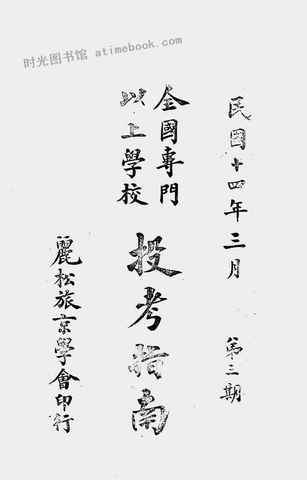 时光图书馆 atimebook.com
民國十四年三月 第三期
全國專門
以上學校
投考指南
麗松旅京學會印行